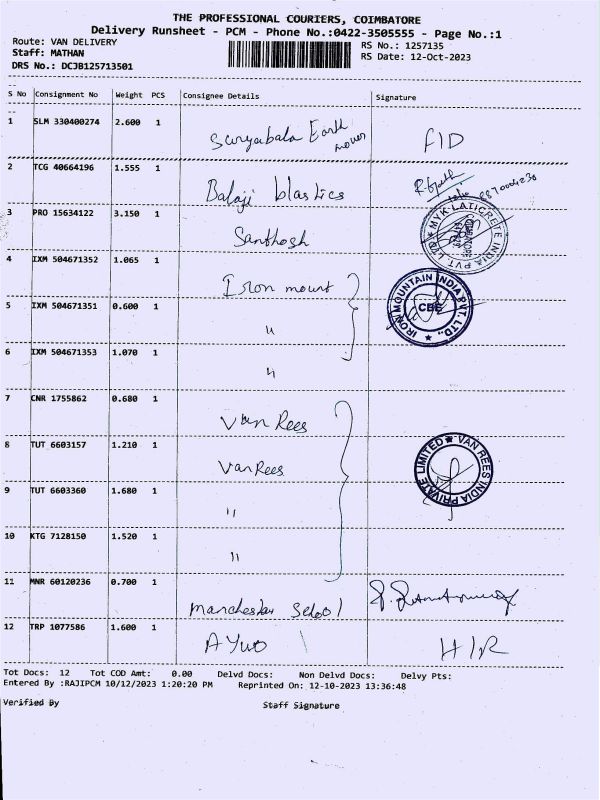 THE PROFESSIONAL COURIERS, COIMBATORE
Delivery Runsheet - PCM - Phone No.:0422-3505555 - Page No.:1
Route: VAN DELIVERY
RS No.: 1257135
Staff: MATHAN
RS Date: 12-Oct-2023
DRS No.: DCJB125713501
S No Consignment No Weight PCS Consignee Details Signature
1 SLM 330400274 2.600 1
Suryabala Earth mover FID
2 TCG 40664196 1.555 1
Balaji blastics
3 PRO 15634122 3.150 1
Santhosh
MYK LATICRETE INDIA PVT. LTD
4 IXM 504671352 1.065 1
Iron mount
IRON MOUNTAIN INDIA PVT. LTD.,
CBE
5 IXM 504671351 0.600 1
"
6 IXM 504671353 1.070 1
"
7 CNR 1755862 0.680 1
Van Rees
8 TUT 6603157 1.210 1
Van Rees
VAN REES INDIA PRIVATE LIMITED
9 TUT 6603360 1.680 1
"
10 KTG 7128150 1.520 1
"
11 MNR 60120236 0.700 1
Manchester School
12 TRP 1077586 1.600 1
H/R
Tot Docs: 12 Tot COD Amt: 0.00 Delvd Docs: Non Delvd Docs: Delvy Pts:
Entered By :RAJIPCM 10/12/2023 1:20:20 PM Reprinted On: 12-10-2023 13:36:48
Verified By Staff Signature